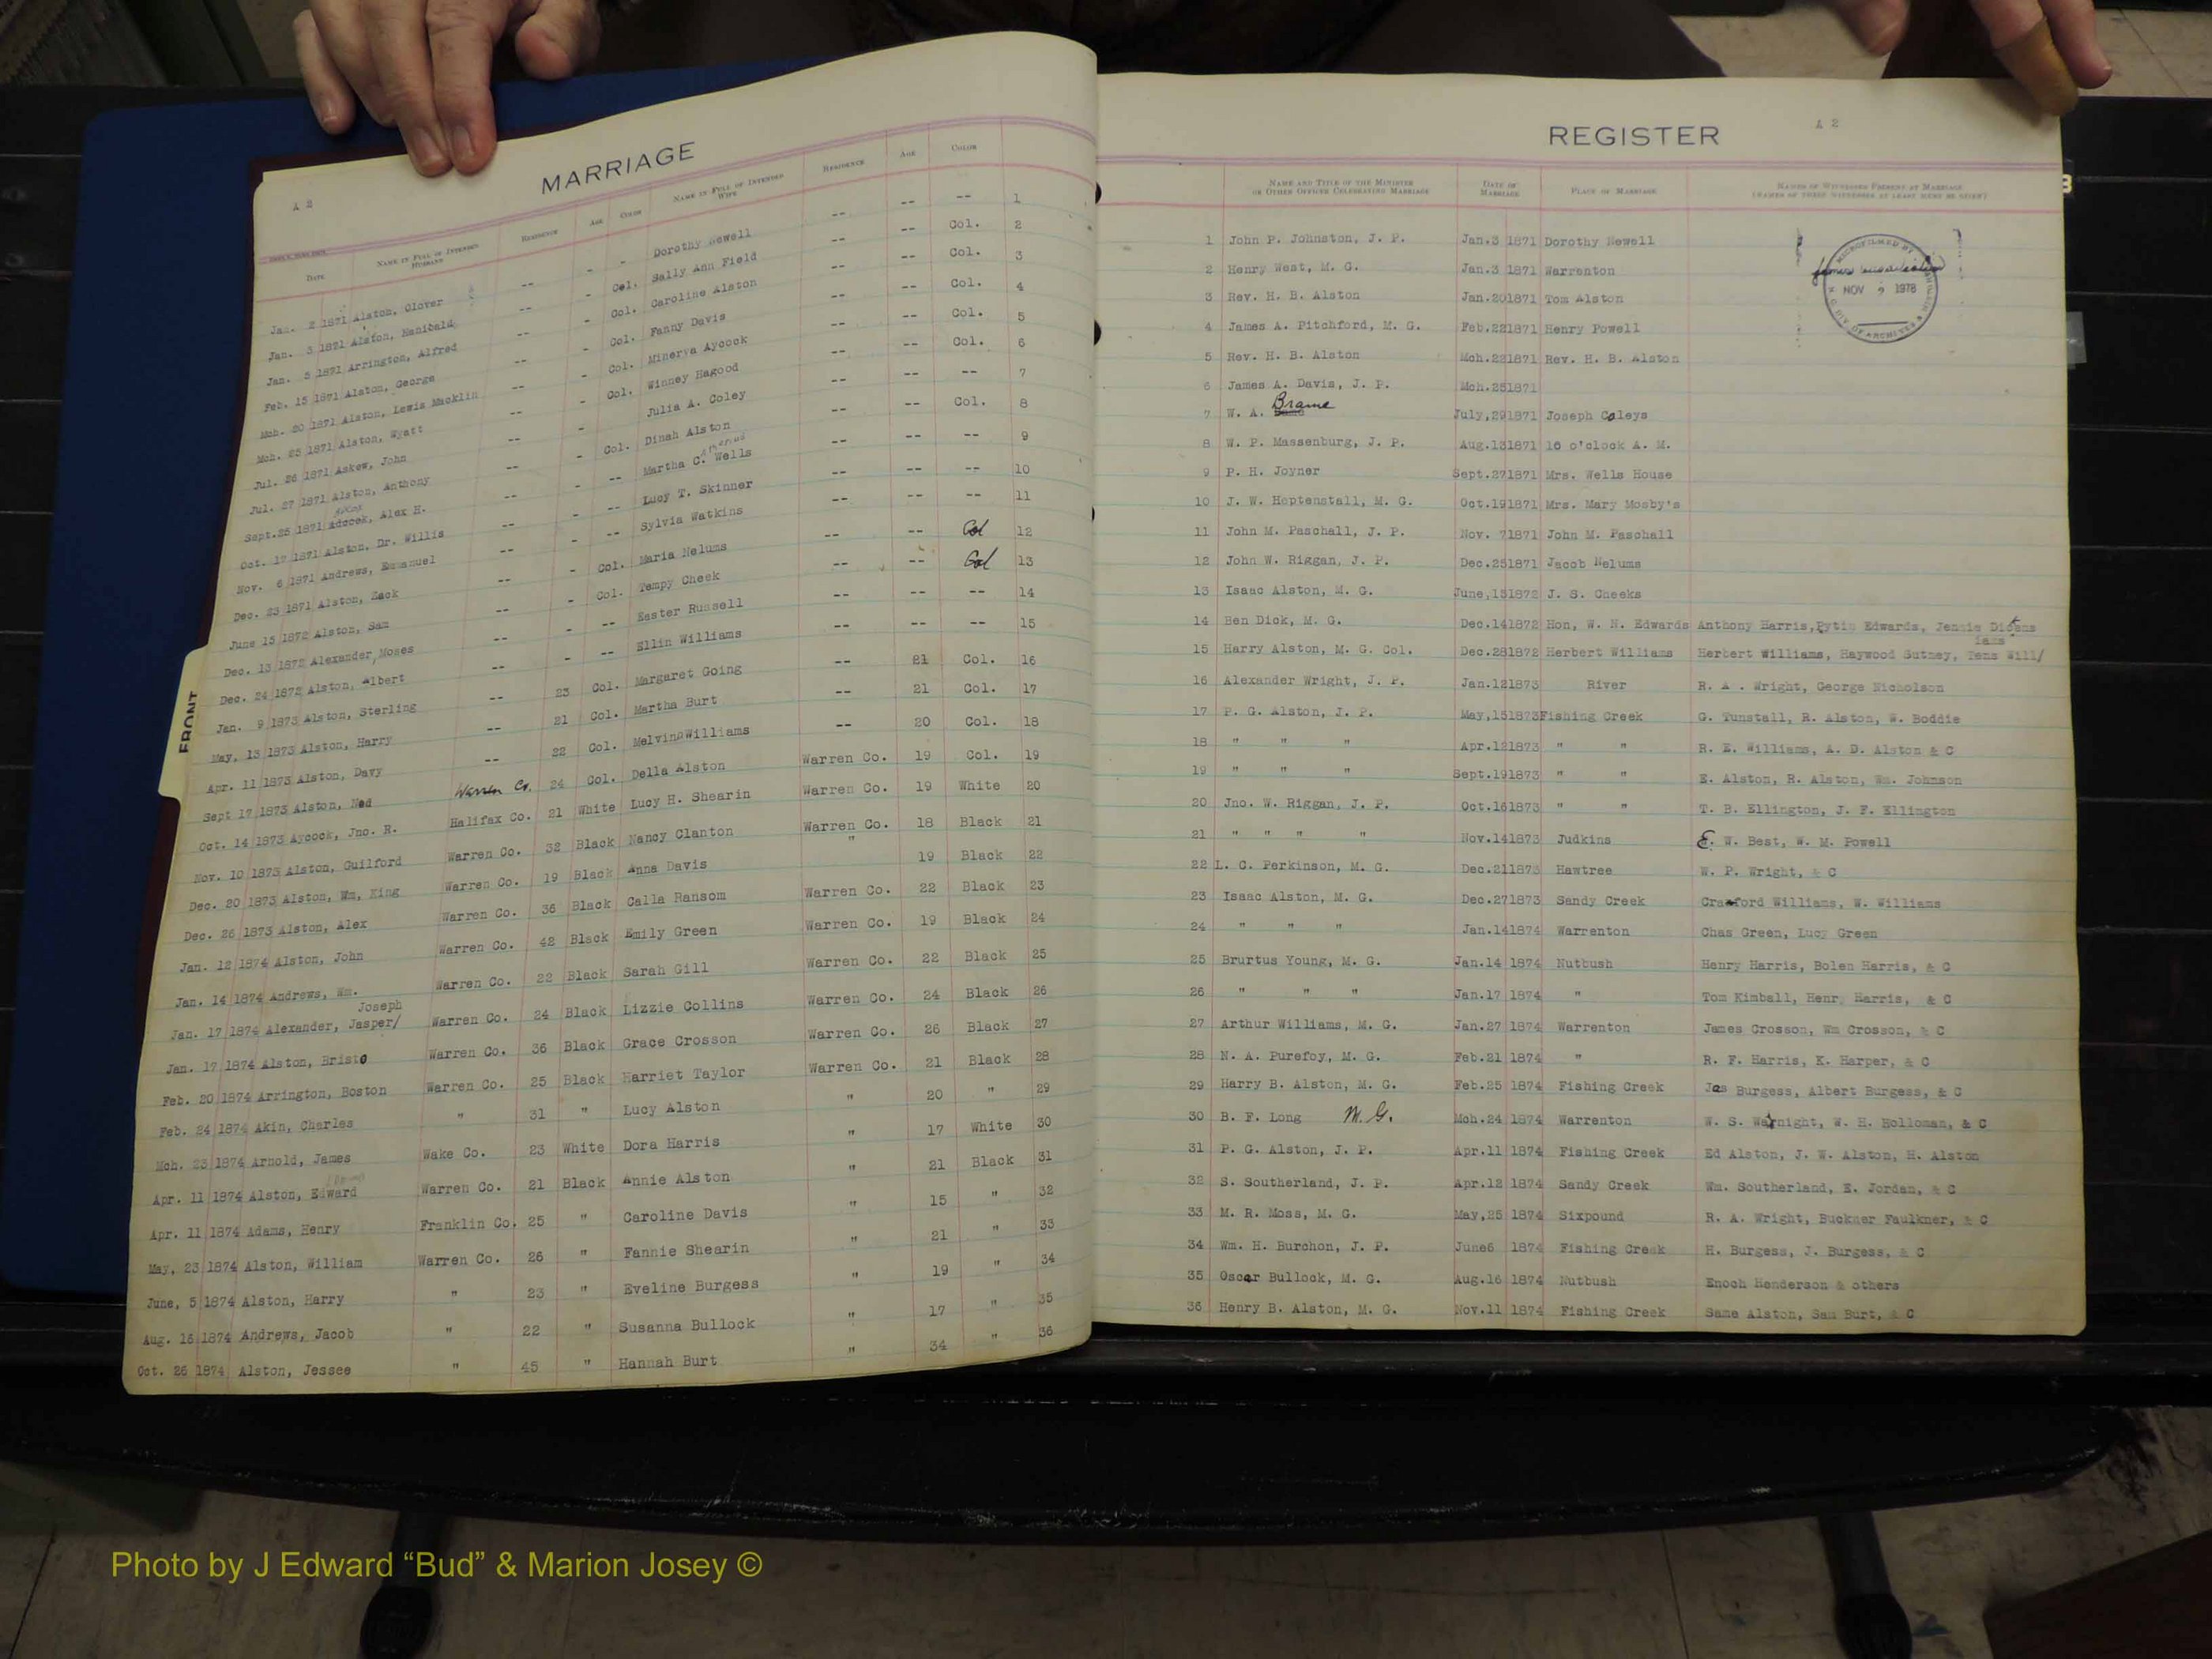 MARRIAGE
A 2
DATE NAME IN FULL OF INTENDED HUSBAND RESIDENCE AGE COLOR NAME IN FULL OF INTENDED WIFE RESIDENCE AGE COLOR
Jan. 2 1871 Alston, Clover -- - - Dorothy Newell -- -- -- 1
Jan. 3 1871 Alston, Hanibald -- - Col. Sally Ann Field -- -- Col. 2
Jan. 5 1871 Arrington, Alfred -- - Col. Caroline Alston -- -- Col. 3
Feb. 15 1871 Alston, George -- - Col. Fanny Davis -- -- Col. 4
Mch. 20 1871 Alston, Lewis Macklin -- - Col. Minerva Aycock -- -- Col. 5
Mch. 23 1871 Alston, Wyatt -- - Col. Winney Hagood -- -- Col. 6
Jul. 26 1871 Askew, John -- - Julia A. Coley -- -- -- 7
Jul. 27 1871 Alston, Anthony -- - Col. Dinah Alston -- -- Col. 8
Sept.25 1871 Adcock, Alex H. -- - -- Martha C. Wells -- -- -- 9
Oct. 17 1871 Alston, Dr. Willis -- - -- Lucy T. Skinner -- -- -- 10
Nov. 6 1871 Andrews, Emmanuel -- - -- Sylvia Watkins -- -- -- 11
Dec. 23 1871 Alston, Zack -- - Col. Maria Nelums -- -- Col 12
June 15 1872 Alston, Sam -- - Col. Tempy Cheek -- -- Col 13
Dec. 13 1872 Alexander, Moses -- - -- Easter Russell -- -- -- 14
Dec. 24 1872 Alston, Albert -- - -- Ellin Williams -- -- -- 15
Jan. 9 1873 Alston, Sterling -- 23 Col. Margaret Going -- 21 Col. 16
May, 13 1873 Alston, Harry -- 21 Col. Martha Burt -- 21 Col. 17
Apr. 11 1873 Alston, Davy -- 22 Col. Melvina Williams -- 20 Col. 18
Sept 17 1873 Alston, Ned Warren Co. 24 Col. Della Alston Warren Co. 19 Col. 19
Oct. 14 1873 Aycock, Jno. R. Halifax Co. 21 White Lucy H. Shearin Warren Co. 19 White 20
Nov. 10 1873 Alston, Guilford Warren Co. 32 Black Nancy Clanton Warren Co. 18 Black 21
Dec. 20 1873 Alston, Wm, King Warren Co. 19 Black Anna Davis " 19 Black 22
Dec. 26 1873 Alston, Alex Warren Co. 36 Black Calla Ransom Warren Co. 22 Black 23
Jan. 12 1874 Alston, John Warren Co. 42 Black Emily Green Warren Co. 19 Black 24
Jan. 14 1874 Andrews, Wm. Warren Co. 22 Black Sarah Gill Warren Co. 22 Black 25
Joseph
Jan. 17 1874 Alexander, Jasper/ Warren Co. 24 Black Lizzie Collins Warren Co. 24 Black 26
Jan. 17 1874 Alston, Bristo Warren Co. 36 Black Grace Crosson Warren Co. 26 Black 27
Feb. 20 1874 Arrington, Boston Warren Co. 25 Black Harriet Taylor Warren Co. 21 Black 28
Feb. 24 1874 Akin, Charles " 31 " Lucy Alston " 20 " 29
Mch. 23 1874 Arnold, James Wake Co. 23 White Dora Harris " 17 White 30
Apr. 11 1874 Alston, Edward Warren Co. 21 Black Annie Alston " 21 Black 31
Apr. 11 1874 Adams, Henry Franklin Co. 25 " Caroline Davis " 15 " 32
May, 23 1874 Alston, William Warren Co. 26 " Fannie Shearin " 21 " 33
June, 5 1874 Alston, Harry " 23 " Eveline Burgess " 19 " 34
Aug. 16 1874 Andrews, Jacob " 22 " Susanna Bullock " 17 " 35
Oct. 26 1874 Alston, Jessee " 45 " Hannah Burt " 34 " 36
FRONT
REGISTER
A 2
NAME AND TITLE OF THE MINISTER OR OTHER OFFICER CELEBRATING MARRIAGE DATE OF MARRIAGE PLACE OF MARRIAGE NAMES OF WITNESSES PRESENT AT MARRIAGE
MICROFILMED BY
NOV 9 1978
DIV OF ARCHIVES
1 John P. Johnston, J. P. Jan.3 1871 Dorothy Newell
2 Henry West, M. G. Jan.3 1871 Warrenton
3 Rev. H. B. Alston Jan.20 1871 Tom Alston
4 James A. Pitchford, M. G. Feb.22 1871 Henry Powell
5 Rev. H. B. Alston Mch.22 1871 Rev. H. B. Alston
6 James A. Davis, J. P. Mch.25 1871
7 W. A. Brame July,29 1871 Joseph Coleys
8 W. P. Massenburg, J. P. Aug.13 1871 10 o'clock A. M.
9 P. H. Joyner Sept.27 1871 Mrs. Wells House
10 J. W. Heptenstall, M. G. Oct.19 1871 Mrs. Mary Mosby's
11 John M. Paschall, J. P. Nov. 7 1871 John M. Paschall
12 John W. Riggan, J. P. Dec.25 1871 Jacob Nelums
13 Isaac Alston, M. G. June,15 1872 J. S. Cheeks
14 Ben Dick, M. G. Dec.14 1872 Hon, W. N. Edwards Anthony Harris, Edwards, Jennie Dickens
iams
15 Harry Alston, M. G. Col. Dec.28 1872 Herbert Williams Herbert Williams, Haywood Sutney, Tens Will/
16 Alexander Wright, J. P. Jan.12 1873 River R. A. Wright, George Nicholson
17 P. G. Alston, J. P. May,15 1873 Fishing Creek G. Tunstall, R. Alston, W. Boddie
18 " " " Apr.12 1873 " " R. E. Williams, A. D. Alston & C
19 " " " Sept.19 1873 " " E. Alston, R. Alston, Wm. Johnson
20 Jno. W. Riggan, J. P. Oct.16 1873 " " T. B. Ellington, J. F. Ellington
21 " " " " Nov.14 1873 Judkins E. W. Best, W. M. Powell
22 L. C. Perkinson, M. G. Dec.21 1873 Hawtree W. P. Wright, & C
23 Isaac Alston, M. G. Dec.27 1873 Sandy Creek Crawford Williams, W. Williams
24 " " " Jan.14 1874 Warrenton Chas Green, Lucy Green
25 Brurtus Young, M. G. Jan.14 1874 Nutbush Henry Harris, Bolen Harris, & C
26 " " " Jan.17 1874 " Tom Kimball, Henr Harris, & C
27 Arthur Williams, M. G. Jan.27 1874 Warrenton James Crosson, Wm Crosson, & C
28 N. A. Purefoy, M. G. Feb.21 1874 " R. F. Harris, K. Harper, & C
29 Harry B. Alston, M. G. Feb.25 1874 Fishing Creek Jas Burgess, Albert Burgess, & C
30 B. F. Long M. G. Mch.24 1874 Warrenton W. S. W. H. Holloman, & C
31 P. G. Alston, J. P. Apr.11 1874 Fishing Creek Ed Alston, J. W. Alston, H. Alston
32 S. Southerland, J. P. Apr.12 1874 Sandy Creek Wm. Southerland, E. Jordan, & C
33 M. R. Moss, M. G. May,25 1874 Sixpound R. A. Wright, Buckner Faulkner, & C
34 Wm. H. Burchon, J. P. June6 1874 Fishing Creek H. Burgess, J. Burgess, & C
35 Oscar Bullock, M. G. Aug.16 1874 Nutbush Enoch Henderson & others
36 Henry B. Alston, M. G. Nov.11 1874 Fishing Creek Same Alston, Sam Burt, & C
Photo by J Edward “Bud” & Marion Josey ©